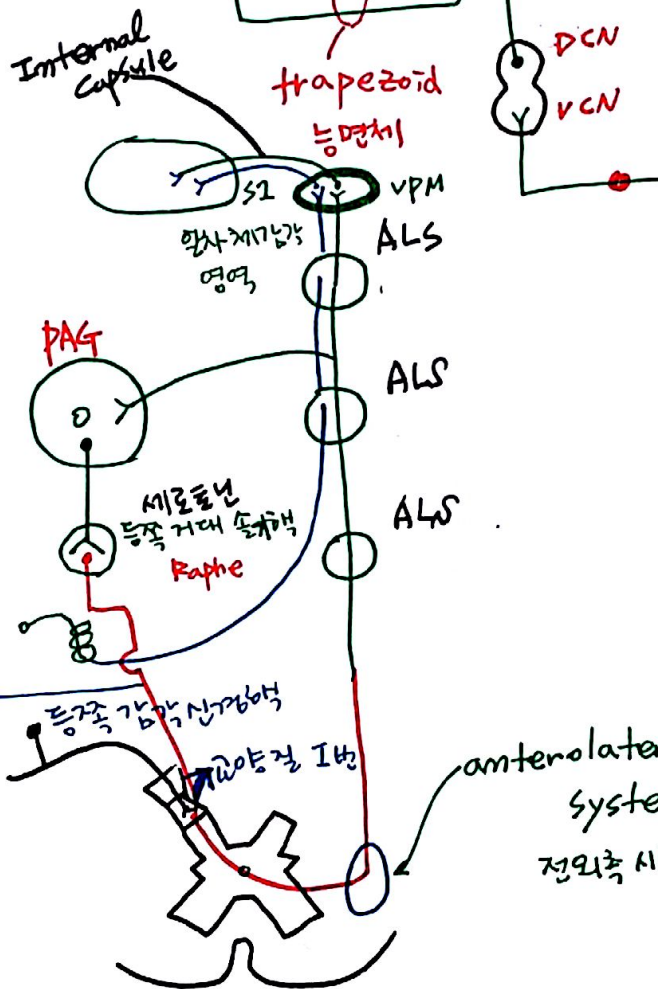 Internal
Capsule
trapezoid
능면체
DCN
VCN
S1
VPM
일차체감각
영역
ALS
PAG
ALS
세로토닌
등쪽 거대 솔기핵
Raphe
ALS
등쪽 감각 신경핵
교양질 I번
anterolate
syste
전외측 시